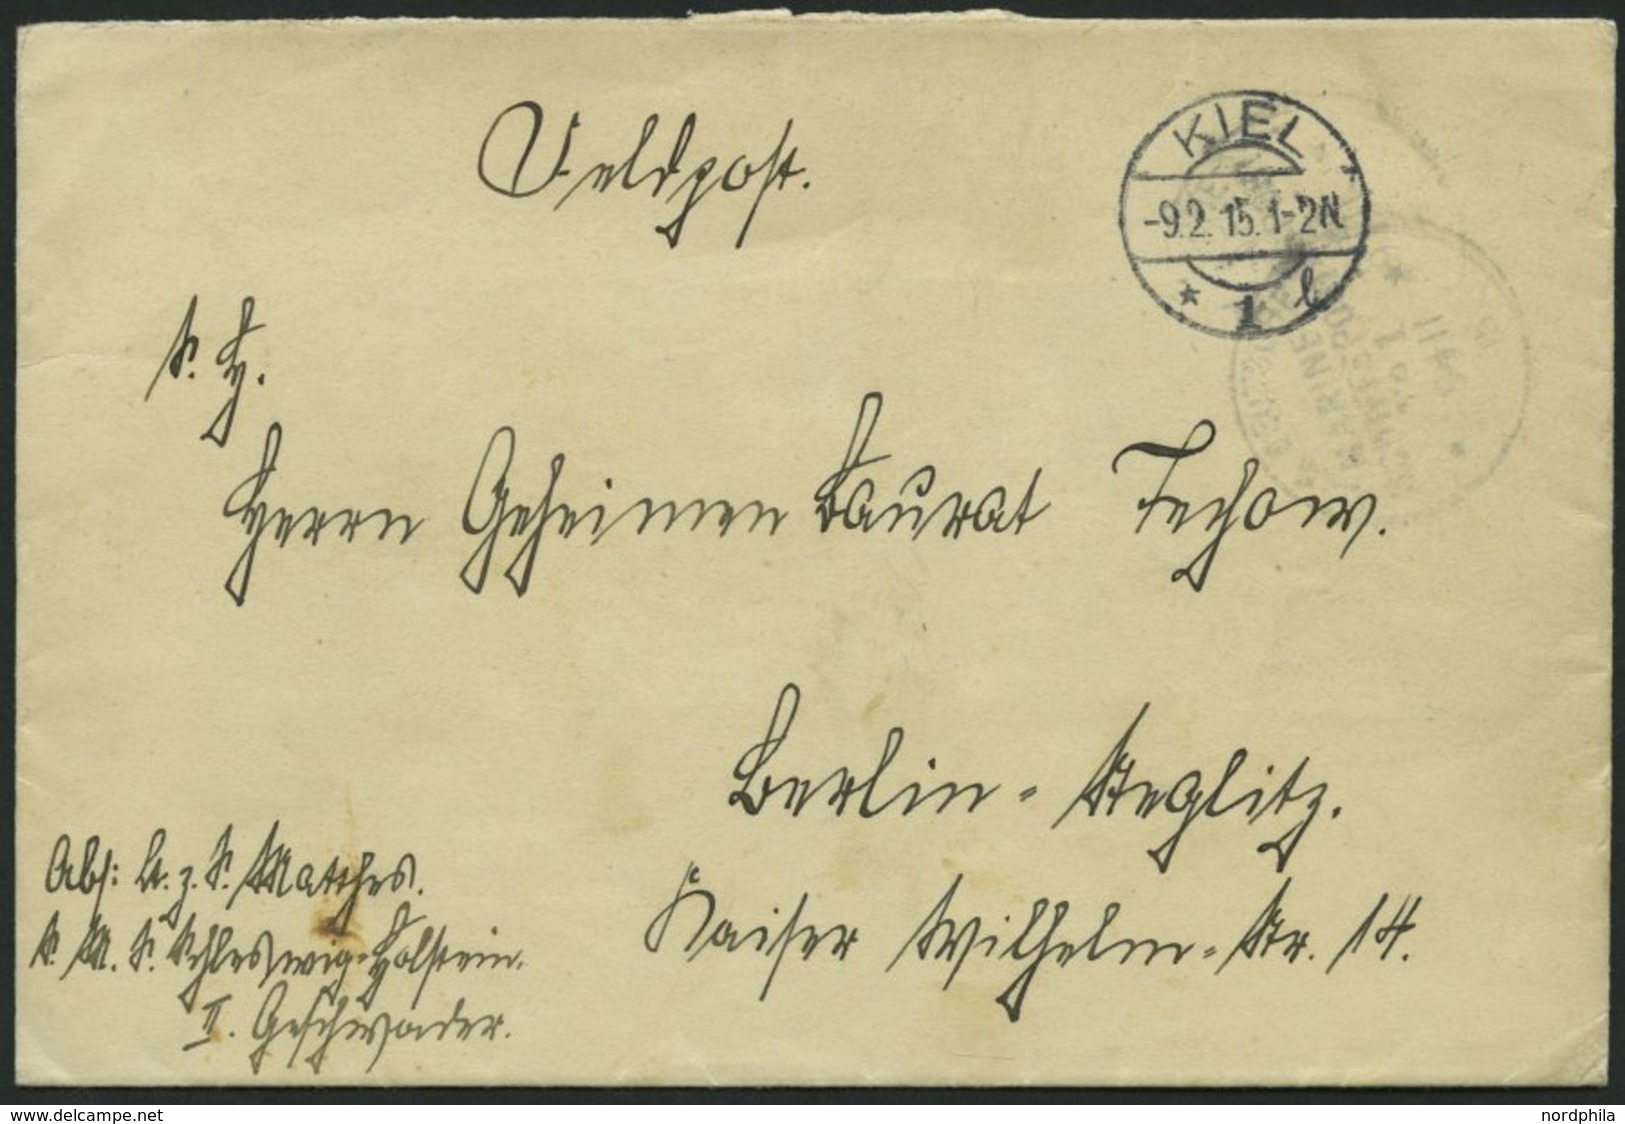 Feldpost.
KIEL
-9.2.15.1-2N
* 1 l
MARINE
S. H.
Herrn Geheimen Baurat Techow.
Berlin-Steglitz.
Kaiser Wilhelm-Str. 14.
Abs: L. z. S. Matthes.
S. M. S. Schleswig-Holstein.
II. Geschwader.
www.delcampe.net
nordphila